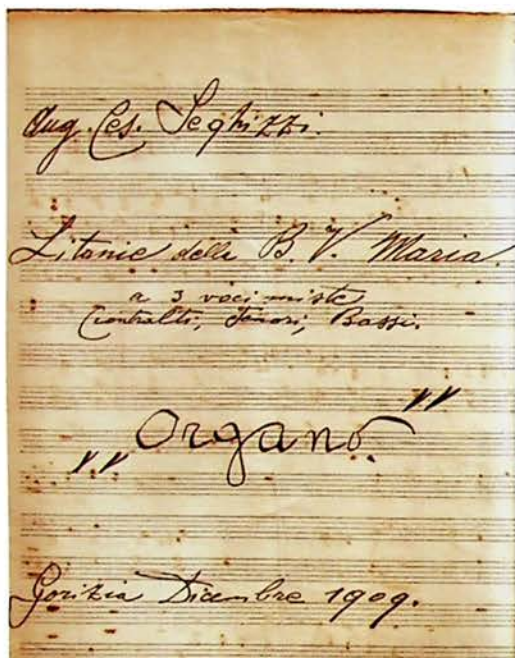 Aug. Ces. Seghizzi.
Litanie della B. V. Maria.
a 3 voci miste
Contralti, Tenori, Bassi.
„Organo.”
Gorizia Dicembre 1909.